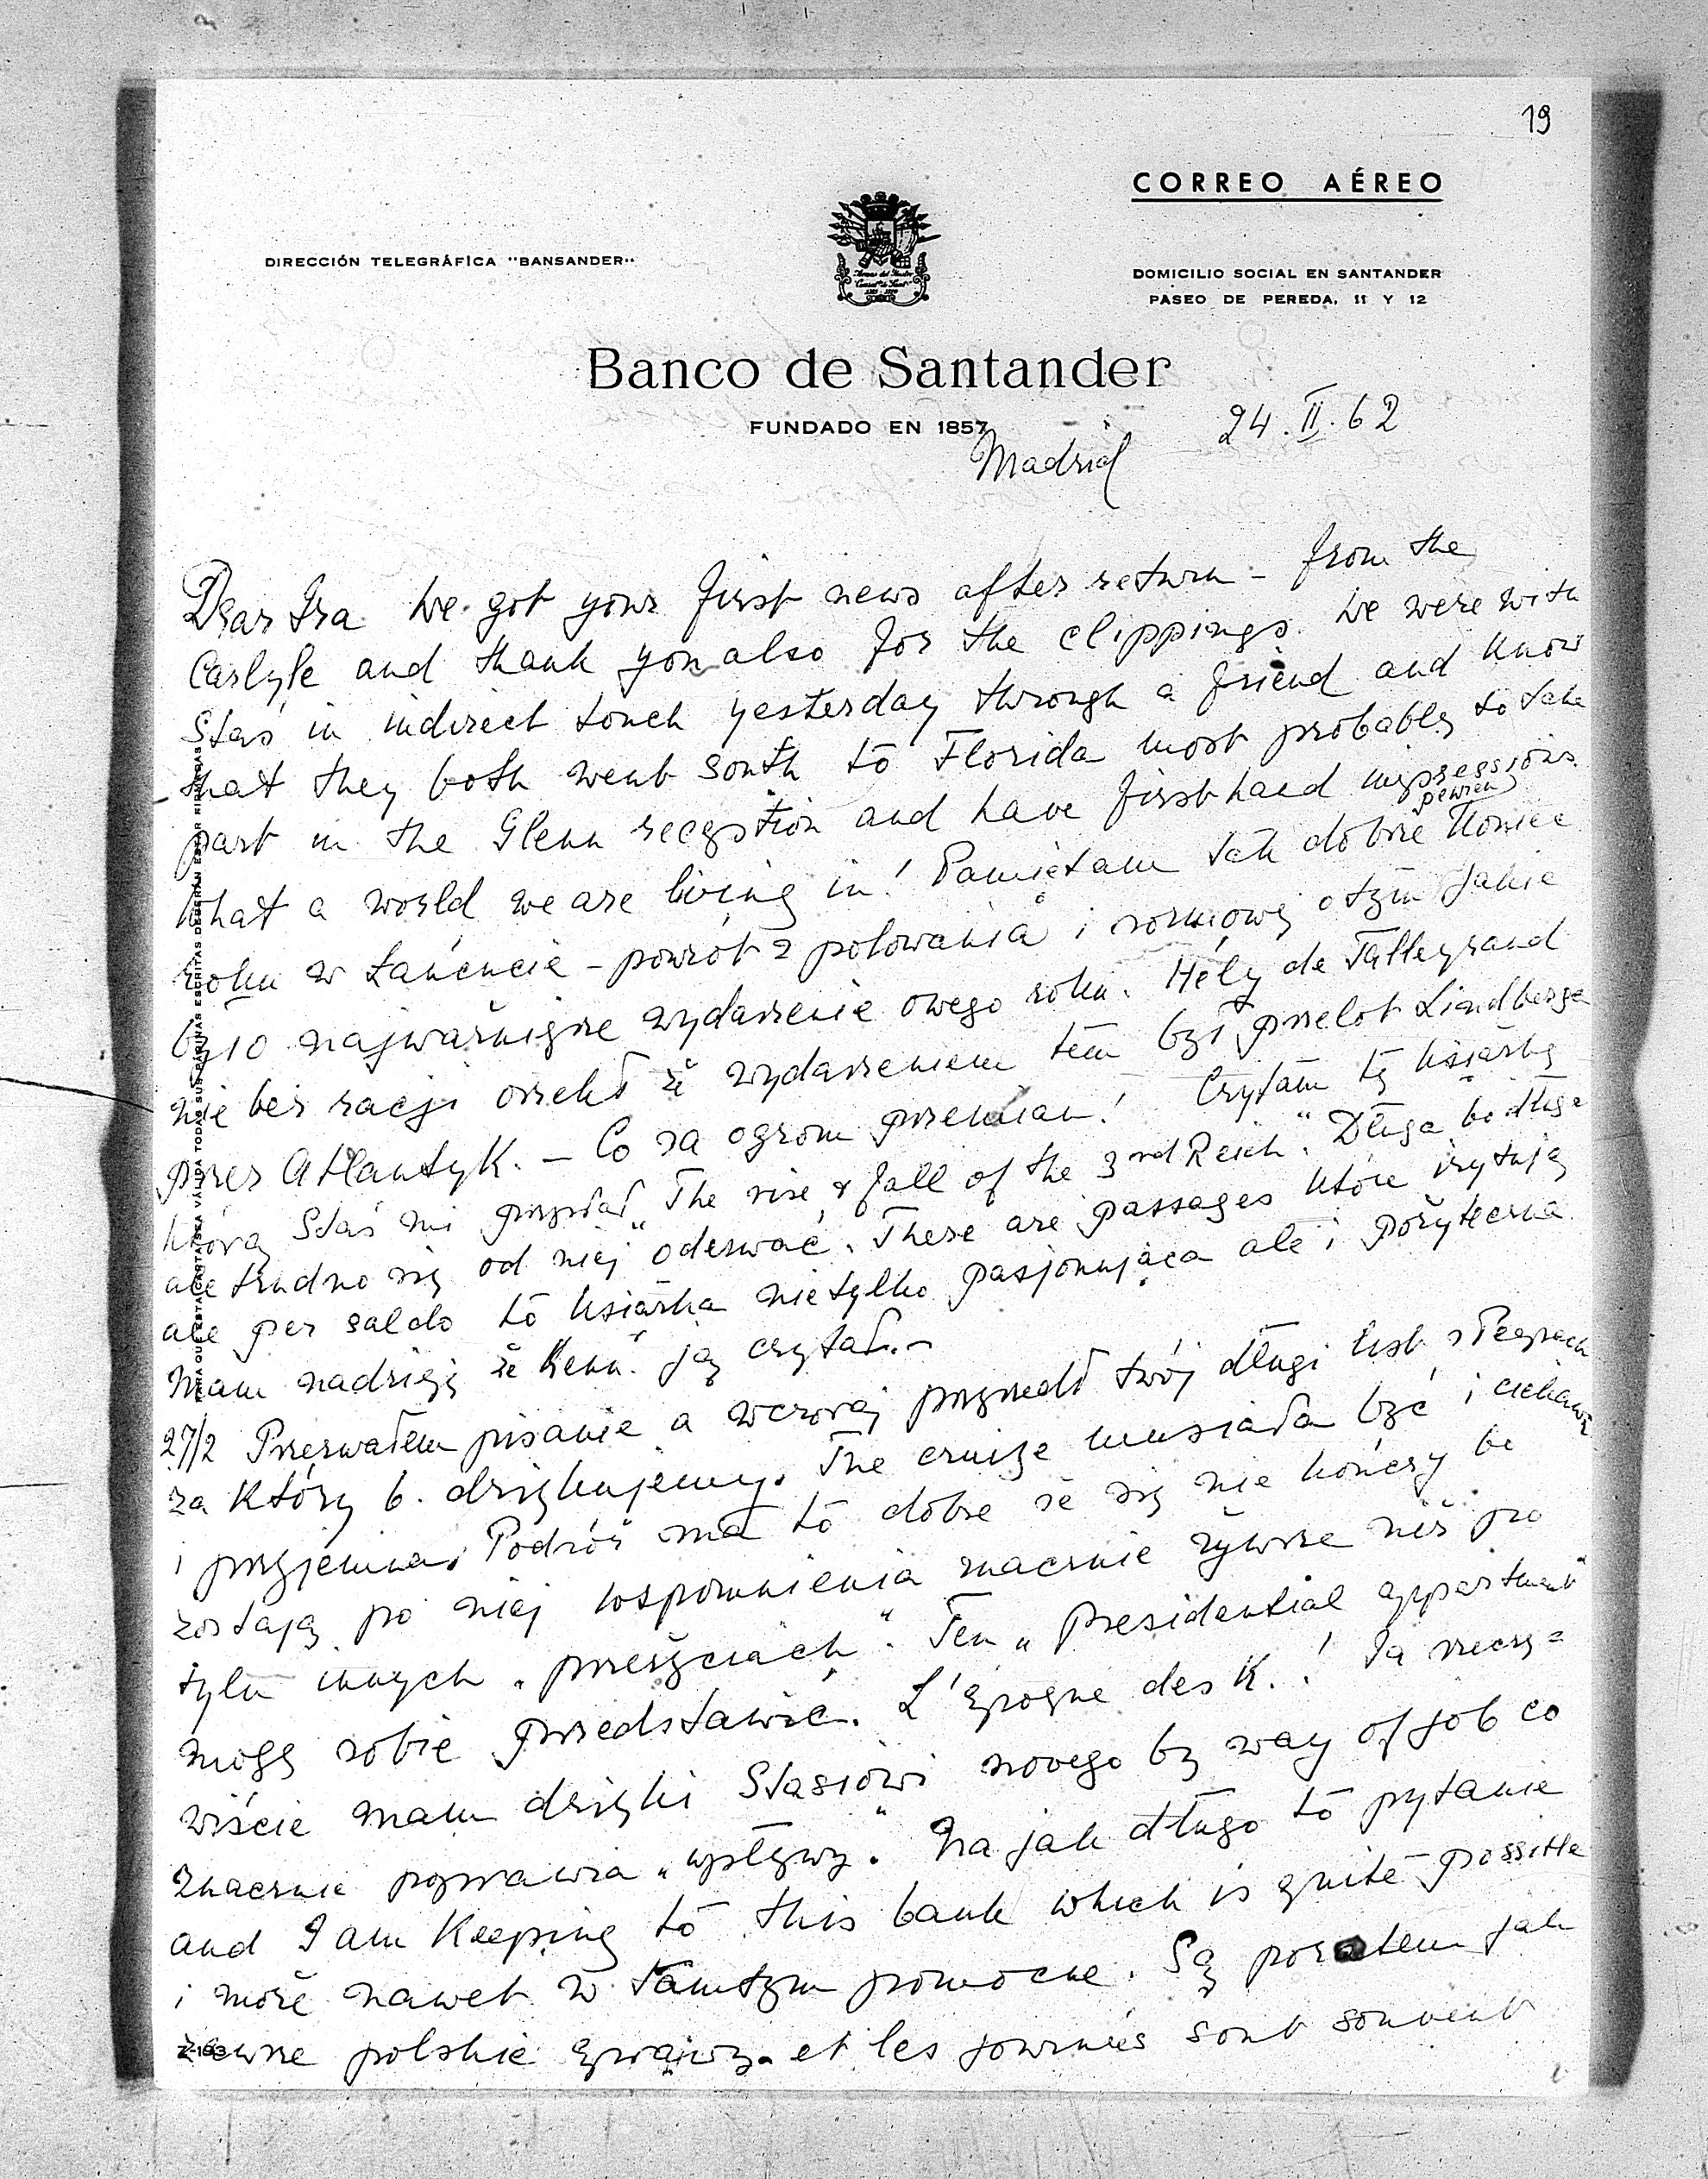 19
CORREO AÉREO
DIRECCIÓN TELEGRÁFICA "BANSANDER"
DOMICILIO SOCIAL EN SANTANDER
PASEO DE PEREDA, 11 Y 12
Banco de Santander
FUNDADO EN 1857
Madrid 24.II.62
Dear Ira We got your first news after return - from the
Carlyle and thank you also for the clippings. We were with
Staś in indirect touch yesterday through a friend and know
that they both went south to Florida most probably to take
part in the Glenn reception and have first hand impressions.
What a world we are living in! Pamiętam tak dobrze pewien koniec
roku w Łańcucie - powrót z polowania i rozmowę o tym jakie
było najważniejsze wydarzenie owego roku. Hély de Talleyrand
nie bez racji orzekł że wydarzeniem tem był przelot Lindberga
przez Atlantyk. - Co za ogrom przemian! Czytam tę książkę
którą Staś mi przysłał "The rise & fall of the 3rd Reich". Długa bo długa
ale trudno się od niej oderwać. There are passages które irytują
ale per saldo to książka nietylko pasjonująca ale i pożyteczna.
Mam nadzieję że Kenn. ją czytał. -
27/2 Przerwałem pisanie a wczoraj przyszedł twój długi list z
za który b. dziękujemy. The cruise musiała być i ciekawą
i przyjemna. Podróż ma to dobre że się nie kończy bo
zostają po niej wspomnienia znacznie żywsze niż po
tylu innych "przeżyciach". Ten "Presidential appartment"
mogę sobie przedstawić. L'époque des K.! Ja rzeczy=
wiście mam dzięki Stasiowi nowego by way of job co
znacznie poprawia "wpływy". Na jak długo to pytanie
and I am keeping to this bank which is quite possible
i może nawet w tamtym pomocne. Są pozatem jak
zawsze polskie sprawy. et les journées sont souvent
PARA QUE ESTA CARTA SEA VÁLIDA TODAS SUS PÁGINAS ESCRITAS DEBERÁN ESTAR FIRMADAS
Z-193